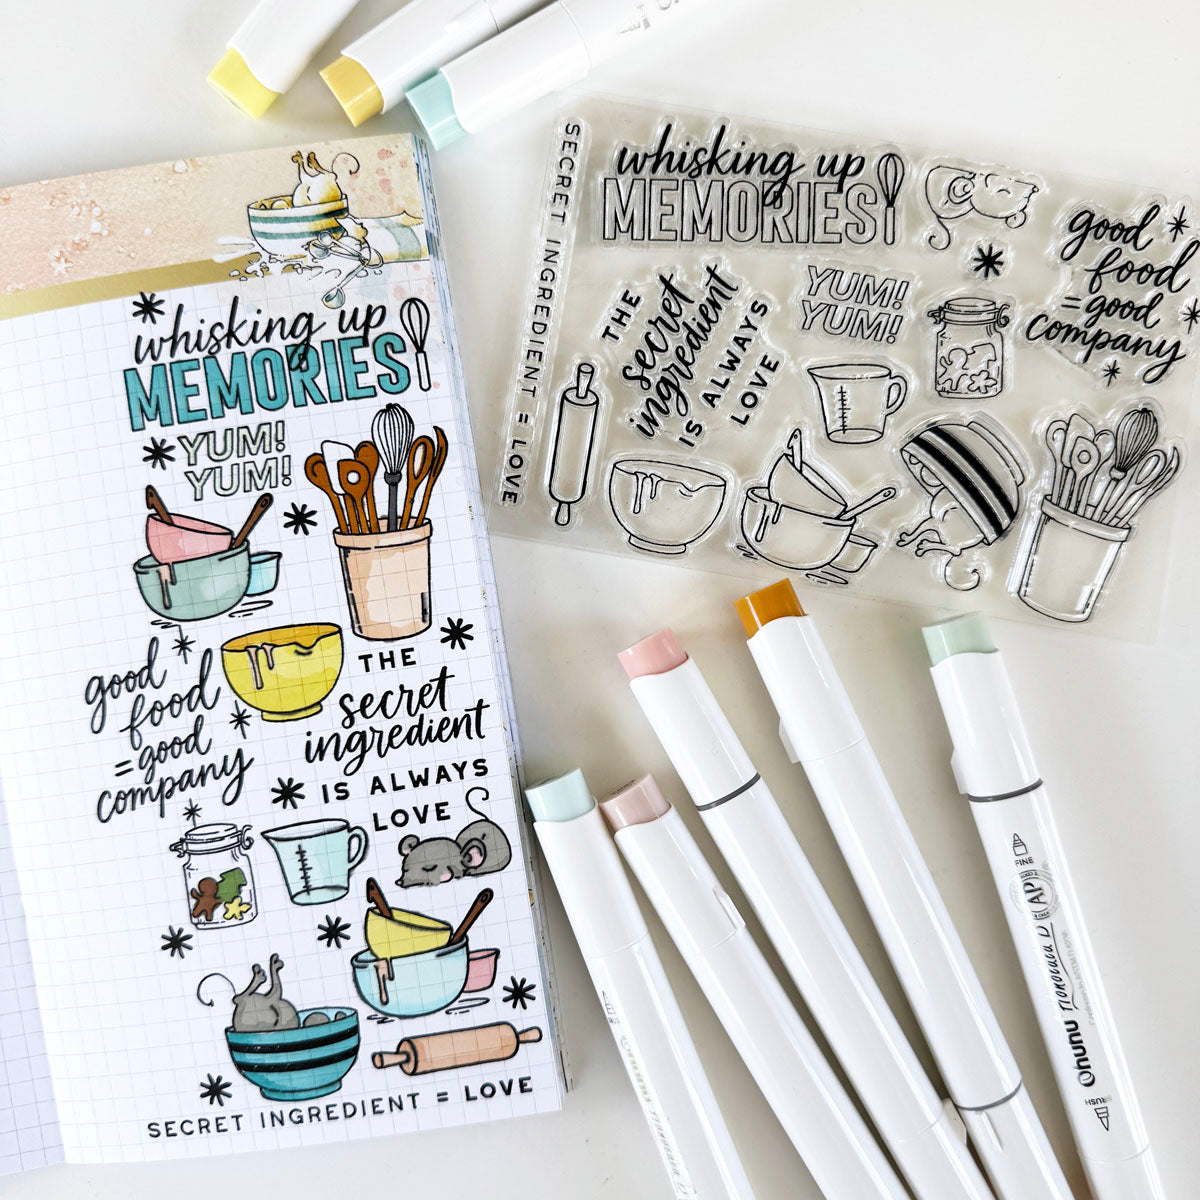 whisking up
MEMORIES
YUM!
YUM!
good
food
= good
company
THE
secret
ingredient
IS ALWAYS
LOVE
SECRET INGREDIENT = LOVE
SECRET INGREDIENT = LOVE
whisking up
MEMORIES
good
food
= good
company
YUM!
YUM!
THE
secret
ingredient
IS ALWAYS
LOVE
FINE
AP
Ohuhu Honolulu B
BRUSH